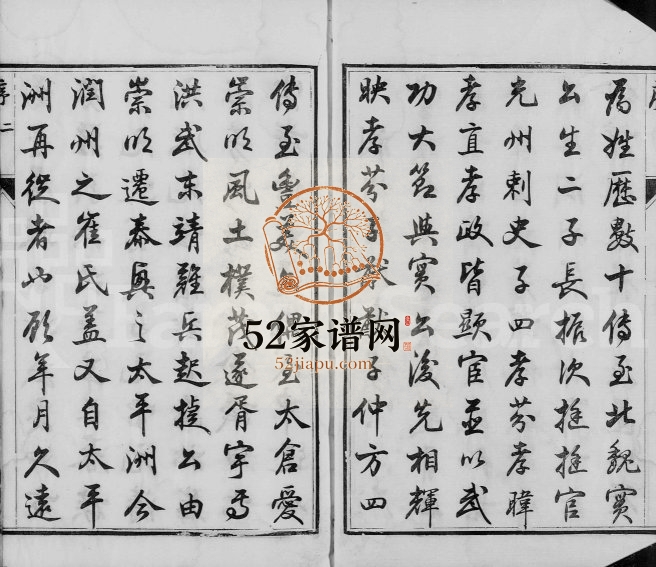 序
為姓歷數十傳至北魏實
公生二子長振次挺挺官
光州刺史子四孝芬孝暐
孝直孝政皆顯宦並以武
功大節與實公後先相輝
映孝芬子猷猷子仲方四
傳至 至太倉愛
崇明風土樸茂遂胥宇焉
洪武末靖難兵起捷公由
崇明遷泰興之太平洲今
潤州之崔氏蓋又自太平
洲再徙者也顧年月久遠
序 二
52家谱网
52jiapu.com